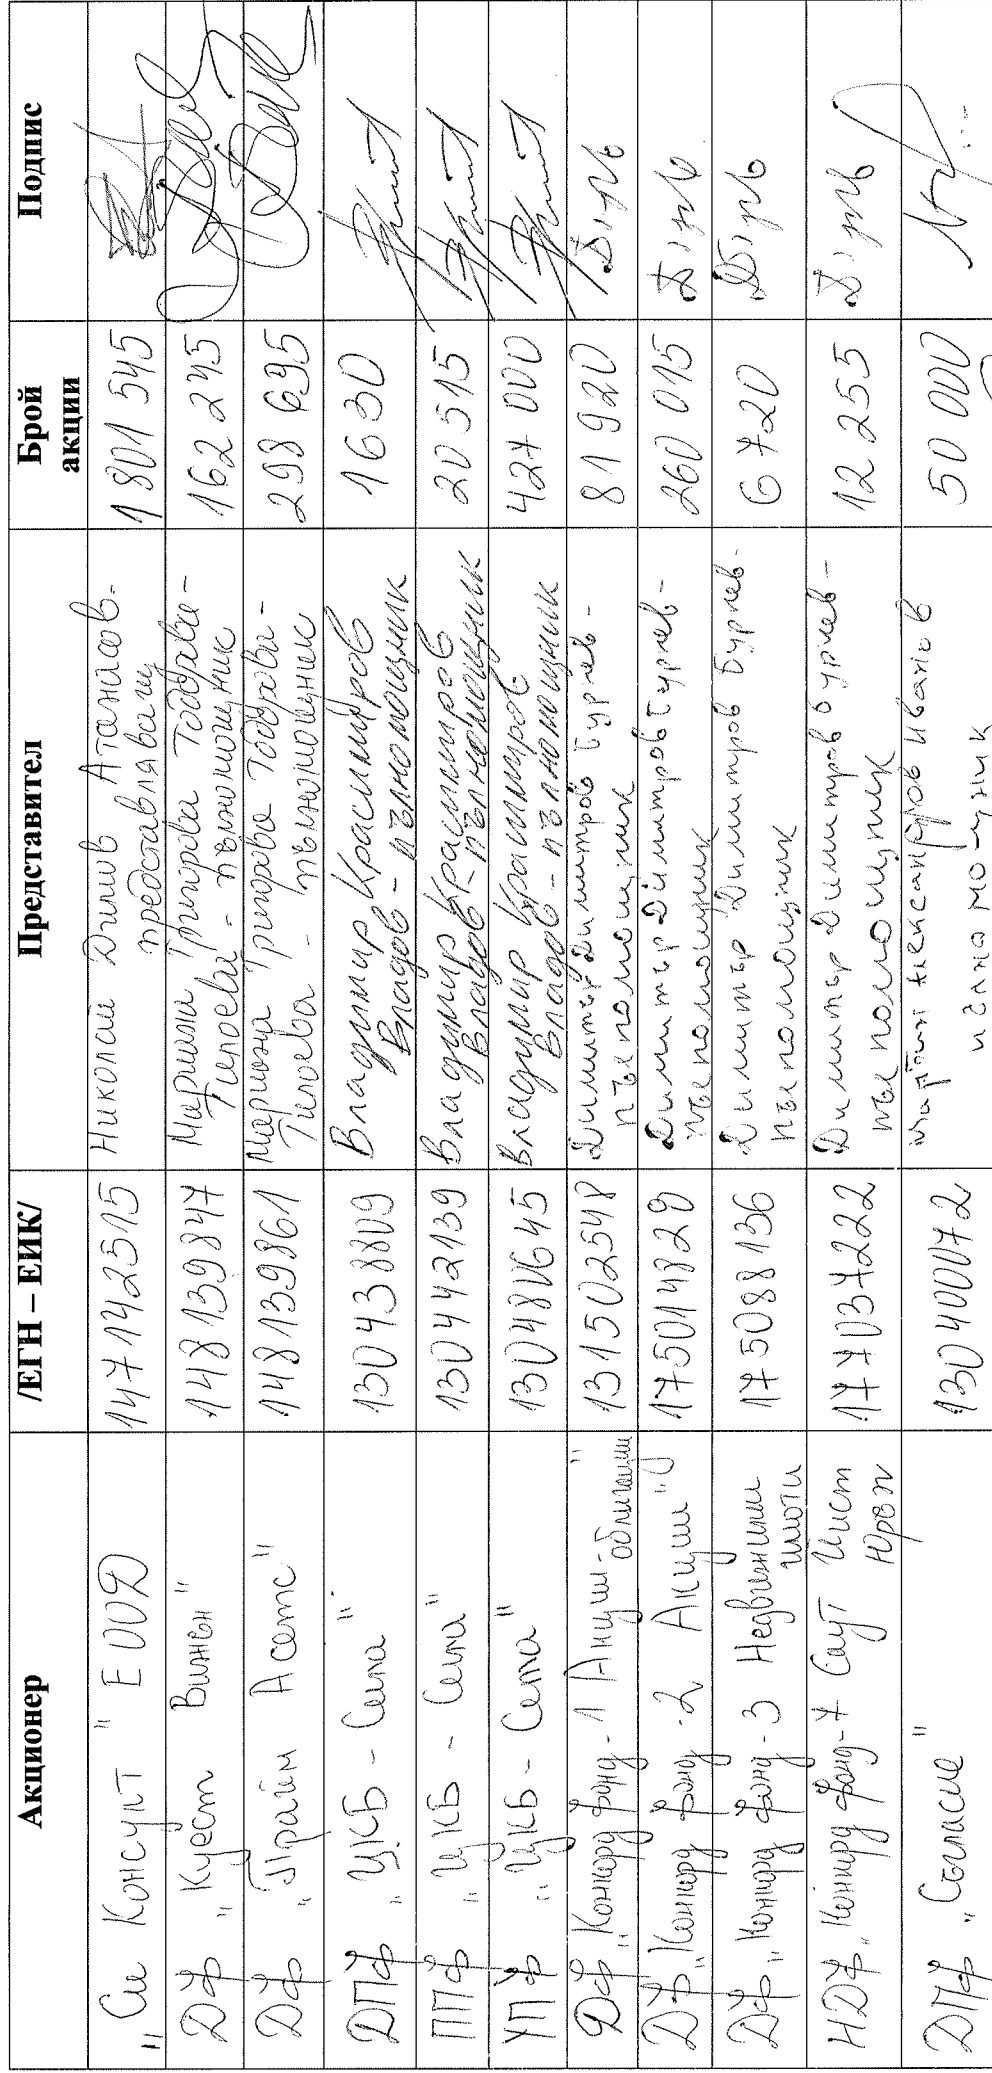 Акционер /ЕГН – ЕИК/ Представител Брой Подпис
акции
„Си Консулт" ЕООД 147142515 Николай Динив Атанасов- 1 801 545
представляващ
ДФ „Куест Вижън" 148139847 Мариана Григорова Тодорова- 162 245
пълномощник
ДФ „Прайм Асетс" 148139861 Мариана Григорова Тодорова- 298 695
пълномощник
ДПФ „ЦКБ - Сила" 130438809 Владимир Красимиров 1630
Владов - пълномощник
ППФ „ЦКБ - Сила" 130442139 Владимир Красимиров 20 515
Владов - пълномощник
УПФ „ЦКБ - Сила" 130480645 Владимир Красимиров 427 000
Владов - пълномощник
ДФ „Конкорд фонд - 1 Акции и облигации" 131502548 Димитър Димитров Бурнев- 81 920
пълномощник
ДФ „Конкорд фонд - 2 Акции" 175014829 Димитър Димитров Бурнев- 260 015
пълномощник
ДФ „Конкорд фонд - 3 Недвижими имоти 175088136 Димитър Димитров Бурнев- 6 720
пълномощник
НДФ „Конкорд фонд - 7 Саут Ийст Юръп 177037222 Димитър Димитров Бурнев- 12 255
пълномощник
ДПФ „Съгласие" 130400072 Мартин Александров Иванов 50 000
пълномощник